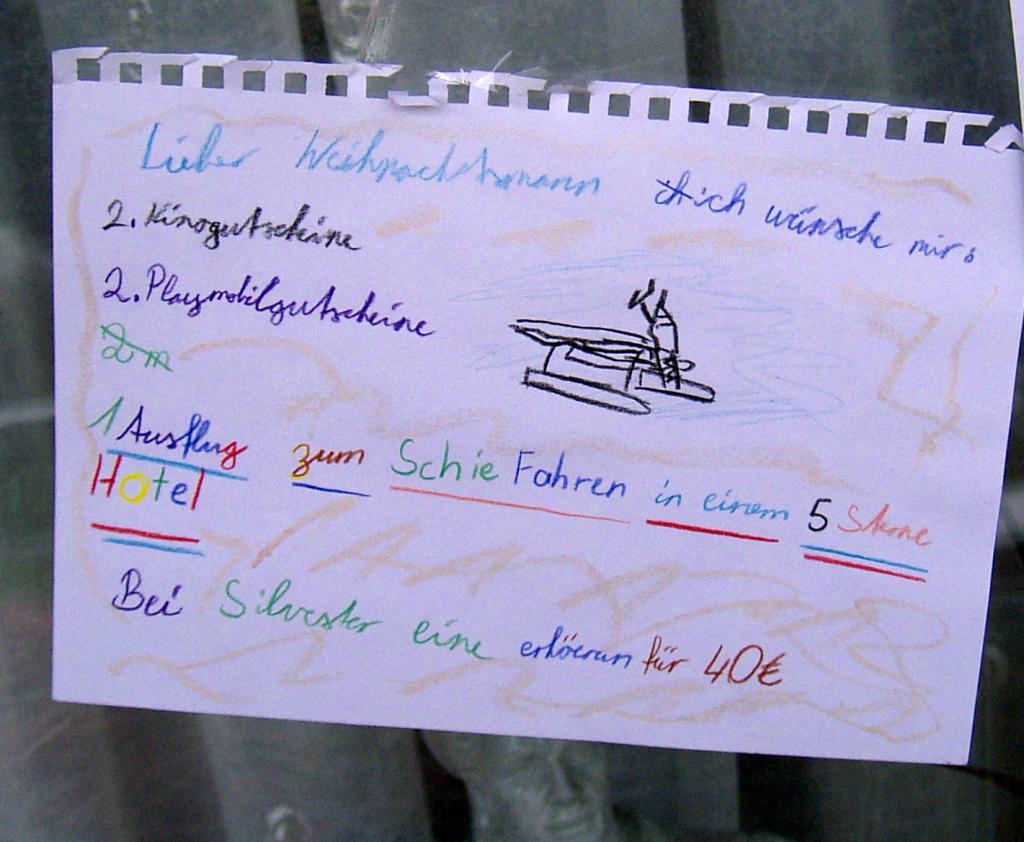 Lieber Weihnachtsmann ich wünsche mir:
2. Kinogutscheine
2. Playmobilgutscheine
2 m
1 Ausflug zum Schie Fahren in einem 5 Sterne
Hotel
Bei Silvester eine erhöerun für 40€